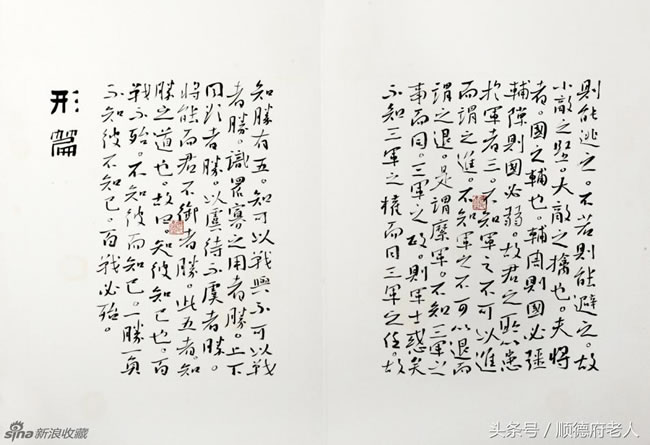 則能逃之。不若則能避之。故
小敵之堅。大敵之擒也。夫將
者。國之輔也。輔周則國必強
輔隙則國必弱。故君之所以患
於軍者三。不知軍之不可以進
而謂之進。不知軍之不可以退而
謂之退。是謂縻軍。不知三軍之
事而同。三軍之政。則軍士惑矣
不知三軍之權而同三軍之任。故
知勝有五。知可以戰與不可以戰
者勝。識眾寡之用者勝。上下
同欲者勝。以虞待不虞者勝。
將能而君不御者勝。此五者。知
勝之道也。故曰。知彼知己也。百
戰不殆。不知彼而知己。一勝一負
不知彼不知己。百戰必殆。
形篇
sina新浪收藏
头条号/顺德府老人